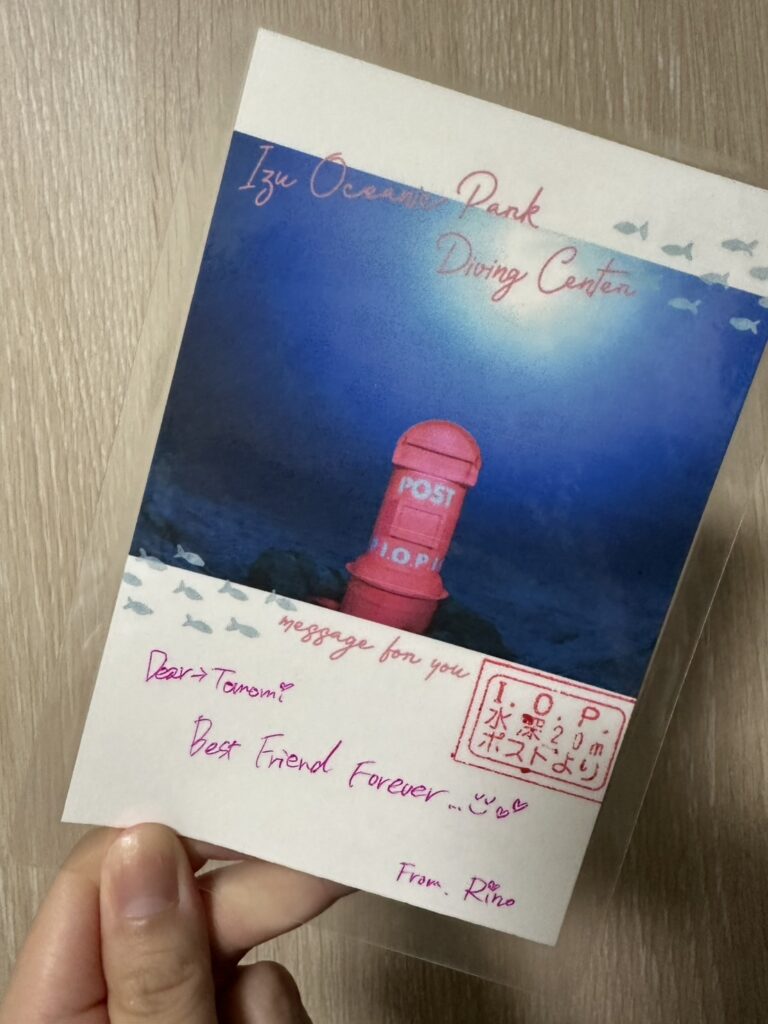 Izu Oceanic Park
Diving Center
POST
I.O.P
message for you
I. O. P.
水深20m
ポストより
Dear→Tomomi
Best Friend Forever...
From. Rino